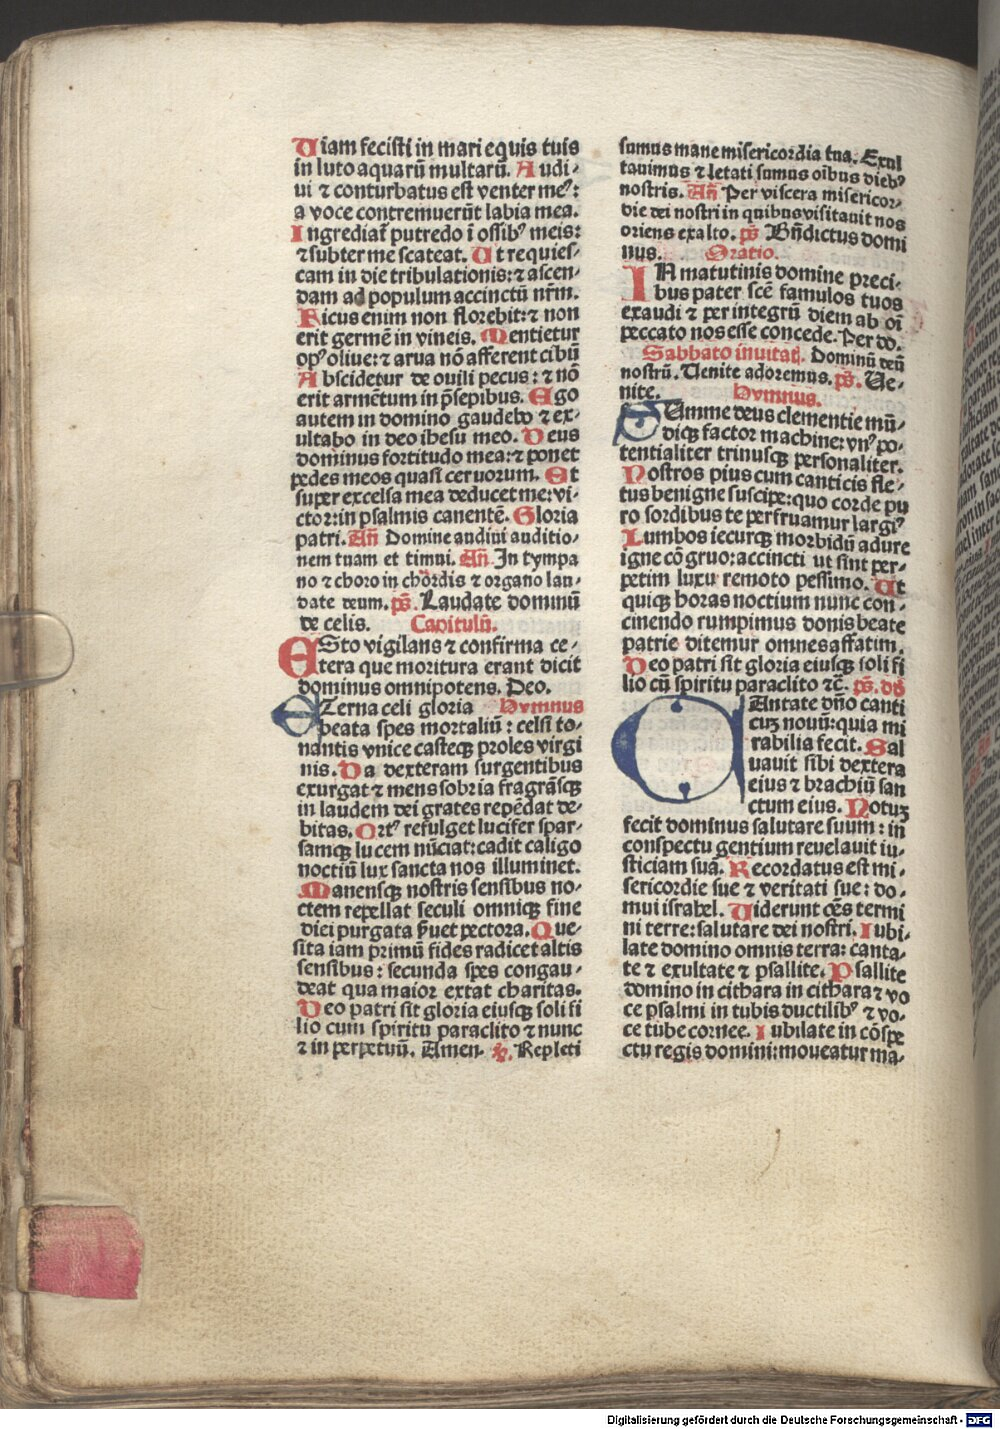 Uiam fecisti in mari equis tuis
in luto aquarū multarū. Audi-
ui ⁊ conturbatus est venter meꝰ:
a voce contremuerūt labia mea.
Ingrediat̄ putredo ī ossibꝰ meis:
⁊ subter me scateat. Ut requies-
cam in die tribulationis: ⁊ ascen-
dam ad populum accinctū nr̄m.
Ficus enim non florebit: ⁊ non
erit germē in vineis. Mentietur
opꝰ oliue: ⁊ arua nō afferent cibū
Abscidetur de ouili pecus: ⁊ nō
erit armētum in p̄sepibus. Ego
autem in domino gaudebo ⁊ ex-
ultabo in deo ihesu meo. Deus
dominus fortitudo mea: ⁊ ponet
pedes meos quasi ceruorum. Et
super excelsa mea deducet me: vi-
ctor: in psalmis canentē. Gloria
patri. Añ Domine audiui auditio-
nem tuam et timui. Añ. In tympa
no ⁊ choro in chordis ⁊ organo lau-
date deum. ps̄. Laudate dominū
de celis. Capitulū.
ESto vigilans ⁊ confirma ce-
tera que moritura erant dicit
dominus omnipotens. Deo.
ETerna celi gloria Hymnus
beata spes mortaliū: celsi to-
nantis vnice casteqꝫ proles virgi
nis. Da dexteram surgentibus
exurgat ⁊ mens sobria fragrāsqꝫ
in laudem dei grates repēdat de-
bitas. Ortꝰ refulget lucifer spar-
samqꝫ lucem nūciat: cadit caligo
noctiū lux sancta nos illuminet.
Manensqꝫ nostris sensibus no-
ctem repellat seculi omniqꝫ fine
diei purgata p̄uet pectora. Que-
sita iam primū fides radicet altis
sensibus: secunda spes congau-
deat qua maior extat charitas.
Deo patri sit gloria eiusqꝫ soli fi
lio cum spiritu paraclito ⁊ nunc
⁊ in perpetuū. Amen. ℣. Repleti
sumus mane misericordia tua. Exul
tauimus ⁊ letati sumus oībus diebꝰ
nostris. Añ Per viscera misericor-
die dei nostri in quibus visitauit nos
oriens exalto. ps̄ Bn̄dictus domi
nus. Oratio.
IN matutinis domine preci-
bus pater scē famulos tuos
exaudi ⁊ per integrū diem ab oī
peccato nos esse concede. Per do.
Sabbato inuitat̄. Dominū deū
nostrū. Uenite adoremus. ps̄. Ue-
nite. Hymnus.
SUmme deus clementie mū-
diqꝫ factor machine: vnꝰ po-
tentialiter trinusqꝫ personaliter.
Nostros pius cum canticis fle-
tus benigne suscipe: quo corde pu
ro sordibus te perfruamur largiꝰ
Lumbos iecurqꝫ morbidū adure
igne cōgruo: accincti ut sint per-
petim luxu remoto pessimo. Ut
quiqꝫ horas noctium nunc con-
cinendo rumpimus donis beate
patrie ditemur omnes affatim.
Deo patri sit gloria eiusqꝫ soli fi
lio cū spiritu paraclito ⁊č. ps̄. dd̄
CAntate dn̄o canti
cuꝫ nouū: quia mi
rabilia fecit. Sal
uauit sibi dextera
eius ⁊ brachiū san
ctum eius. Notuꝫ
fecit dominus salutare suum: in
conspectu gentium reuelauit iu-
sticiam suā. Recordatus est mi-
sericordie sue ⁊ veritati sue: do-
mui israhel. Uiderunt oēs termi
ni terre: salutare dei nostri. Iubi-
late domino omnis terra: canta-
te ⁊ exultate ⁊ psallite. Psallite
domino in cithara in cithara ⁊ vo
ce psalmi in tubis ductilibꝰ ⁊ vo-
ce tube cornee. Iubilate in cōspe
ctu regis domini: moueatur ma-
Digitalisierung gefördert durch die Deutsche Forschungsgemeinschaft - DFG